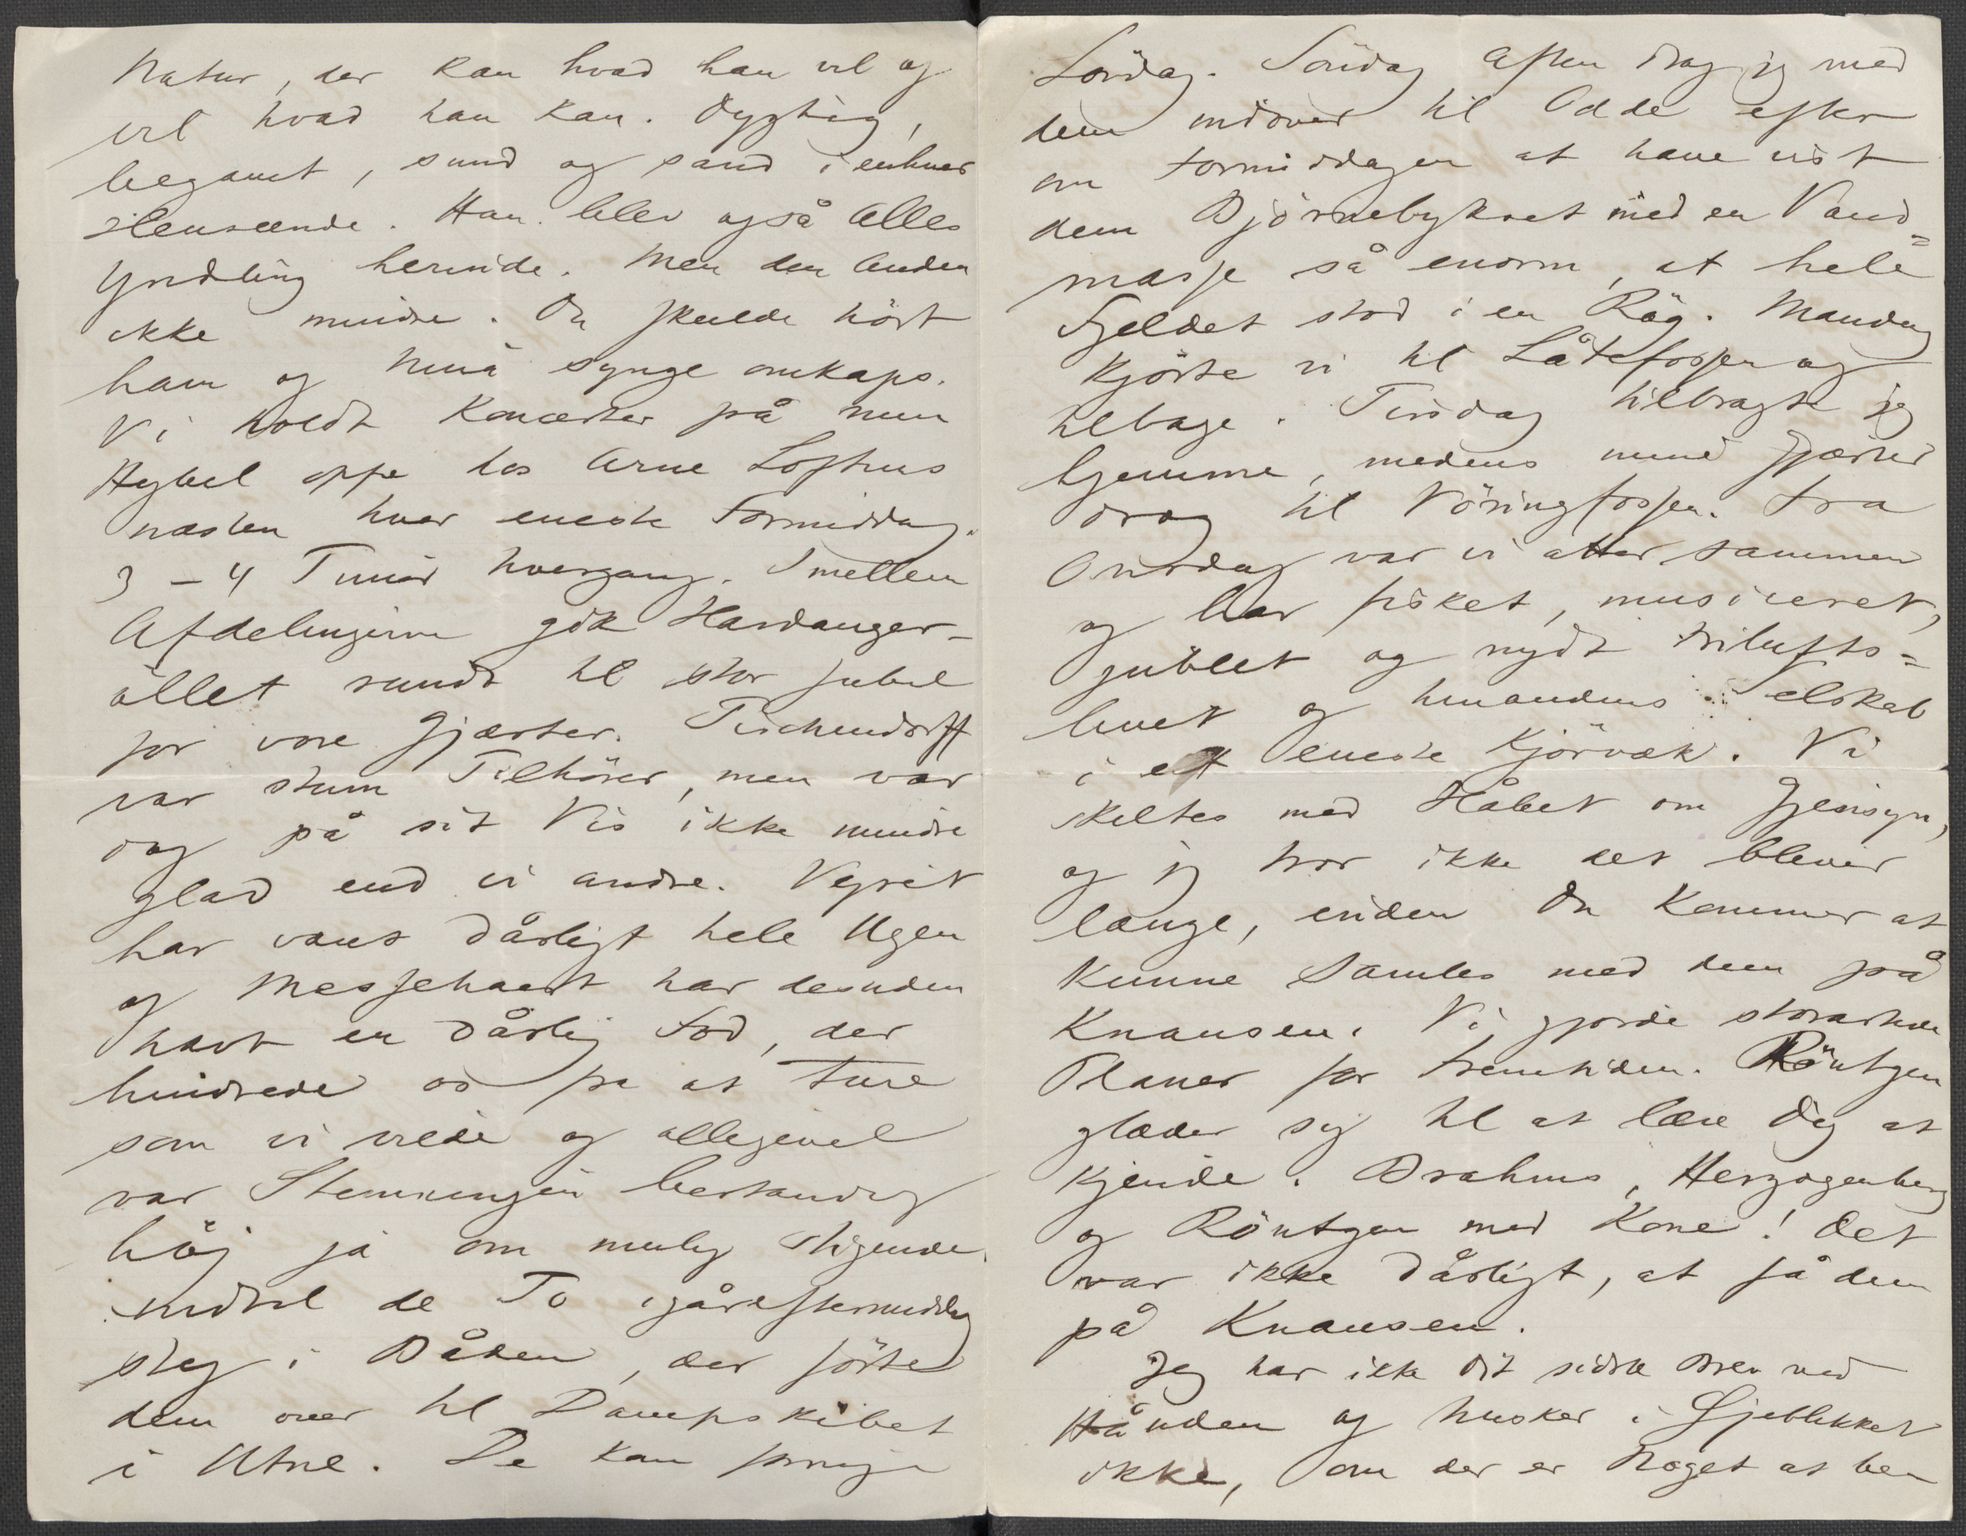 Natur, der kan hvad han vil og
vil hvad han kan. Dygtig,
begavet, sund og sand i enhver
Henseende. Han blev også Alles
Yndling herinde. Men den Anden
ikke mindre. Du skulde hört
ham og Nina synge omkaps.
Vi holdt Koncerter på min
Hybel oppe hos Arne Lofthus
næsten hver eneste Formiddag.
3 – 4 Timer hvergang. Imellem
Afdelingerne gik Hardanger-
öllet rundt til stor Jubel
for vore Gjæster. Tischendorff
var stum Tilhörer, men var
dog på sit Vis ikke mindre
glad end vi andre. Veyret
har været dårligt hele Ugen
og Messchaert har desuden
havt en dårlig Fod, der
hindrede os fra at ture
som vi vilde og alligevel
var Stemningen bestandig
höj ja om mulig stigende,
indtil de To igåreftermiddag
steg i Båden, der förte
dem over til Dampskibet
i Utne. De kan forrige
Lördag. Söndag Aften drog jeg med
dem indover til Odde efter
om Formiddagen at have vist
dem Björnebykset med en Vand=
masse så enorm, at hele
Fjeldet stod i en Røg. Mandag
kjörte vi til Låtefossen og
tilbage. Tirsdag tilbragte jeg
hjemme, medens mine Gjæster
drog til Vöringfossen. Fra
Onsdag var vi atter sammen
og har fisket, musiceret,
jublet og nydt Frilufts=
livet og hinandens Selskab
i et eneste Kjörvæk. Vi
skiltes med Håbet om Gjensyn,
og jeg tror ikke det bliver
længe, inden Du kommer at
kunne samles med dem på
Knausen. Vi gjorde storartede
Planer for Fremtiden. Röntgen
glæder sig til at lære Dig at
kjende. Brahms, Herzogenberg
og Röntgen med Kone! Det
var ikke dårligt, at få dem
på Knausen.
Jeg har ikke dit sidste Brev ved
Hånden og husker i Øjeblikket
ikke, om der er Noget at be-